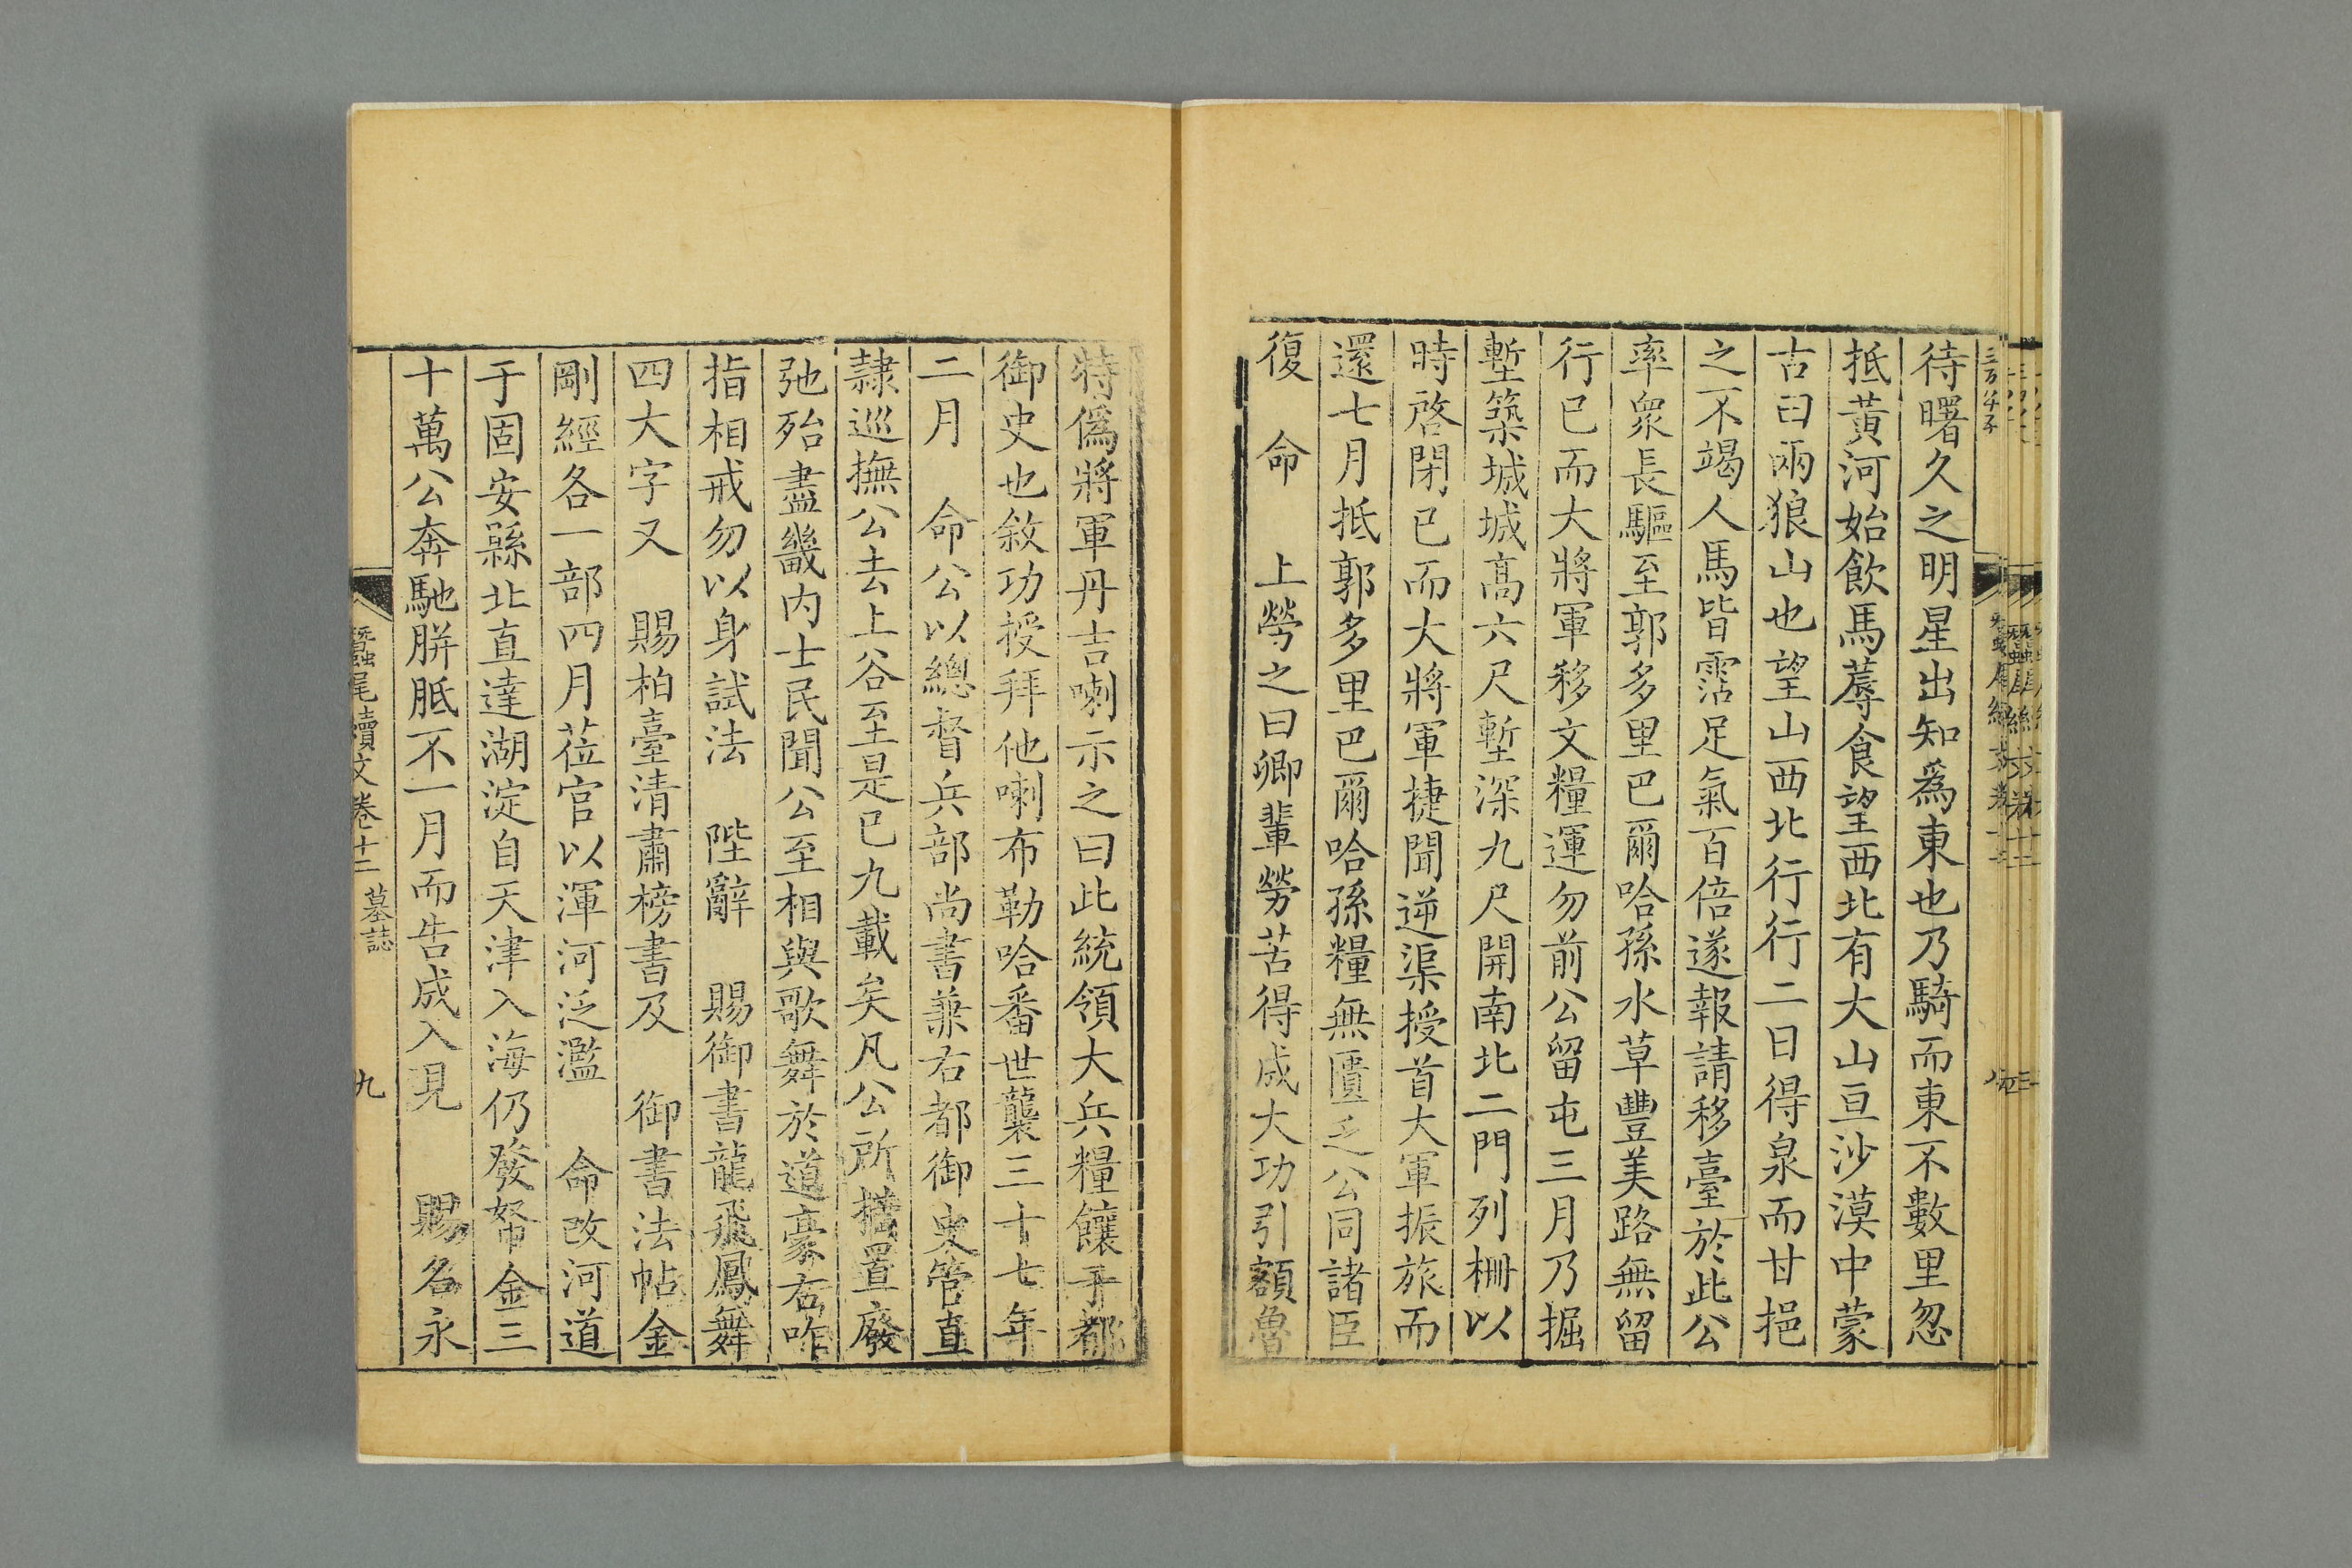 待曙久之明星出知爲東也乃騎而東不數里忽
抵黃河始飲馬蓐食望西北有大山亘沙漠中蒙
古曰兩狼山也望山西北行行二日得泉而甘挹
之不竭人馬皆霑足氣百倍遂報請移臺於此公
率衆長驅至郭多里巴爾哈孫水草豐美路無留
行已而大將軍移文糧運勿前公留屯三月乃掘
塹築城城高六尺塹深九尺開南北二門列柵以
時啓閉已而大將軍捷聞逆渠授首大軍振旅而
還七月抵郭多里巴爾哈孫糧無匱乏公同諸臣
復 命 上勞之曰卿輩勞苦得成大功引額魯
特僞將軍丹吉喇示之曰此統領大兵糧饟于都
御史也敘功授拜他喇布勒哈番世襲三十七年
二月 命公以總督兵部尚書兼右都御史管直
隷巡撫公去上谷至是已九載矣凡公所措置廢
弛殆盡畿内士民聞公至相與歌舞於道豪右咋
指相戒勿以身試法 陛辭 賜御書龍飛鳳舞
四大字又 賜柏臺清肅榜書及 御書法帖金
剛經各一部四月莅官以渾河泛濫 命改河道
于固安縣北直達湖淀自天津入海仍發帑金三
十萬公奔馳胼胝不一月而告成入見 賜名永
蠶尾續文卷十二 墓誌 九